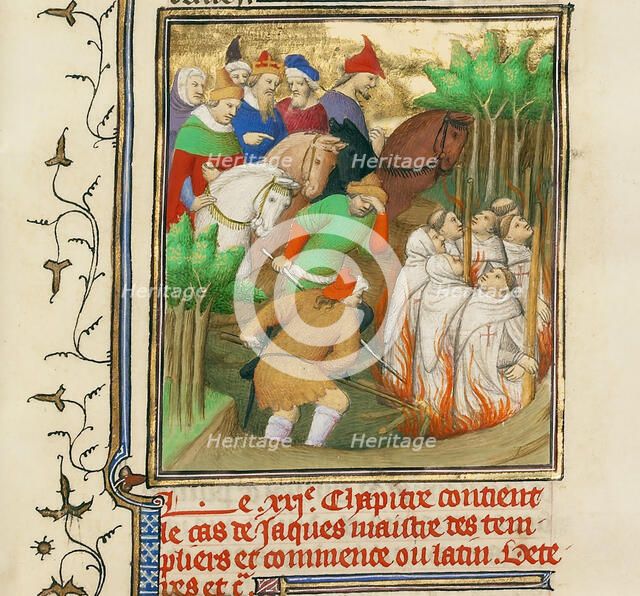 Heritage Heritage
Heritage Heritage Heritage
Heritage Heritage
Le .xxie. Chapitre contient
le cas de Jaques maistre des tem-
pliers et commence ou latin. Vete-
res et c̃.